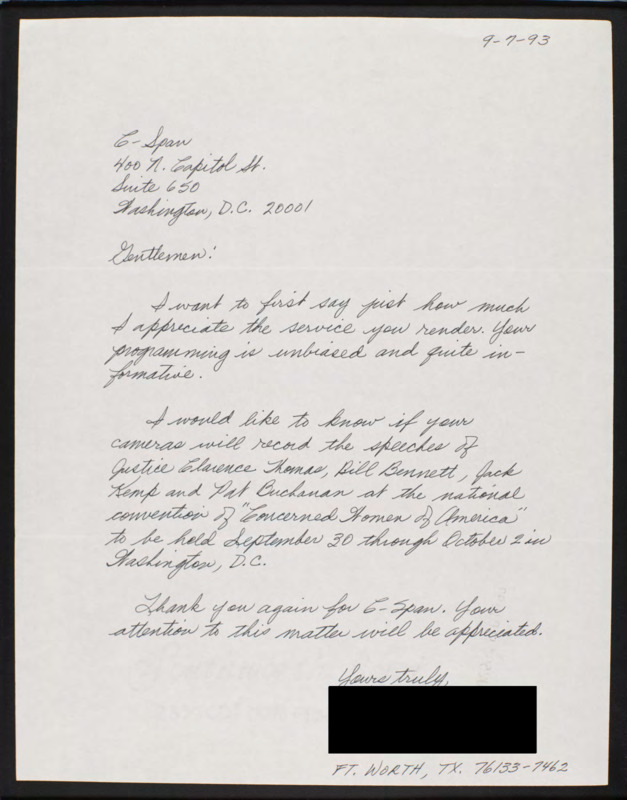 9-7-93
C-Span
400 N. Capitol St.
Suite 650
Washington, D.C. 20001
Gentlemen:
I want to first say just how much
I appreciate the service you render. Your
programming is unbiased and quite in-
formative.
I would like to know if your
cameras will record the speeches of
Justice Clarence Thomas, Bill Bennett, Jack
Kemp and Pat Buchanan at the national
convention of "Concerned Women of America"
to be held September 30 through October 2 in
Washington, D.C.
Thank you again for C-Span. Your
attention to this matter will be appreciated.
Yours truly,
FT. WORTH, TX. 76133-7462